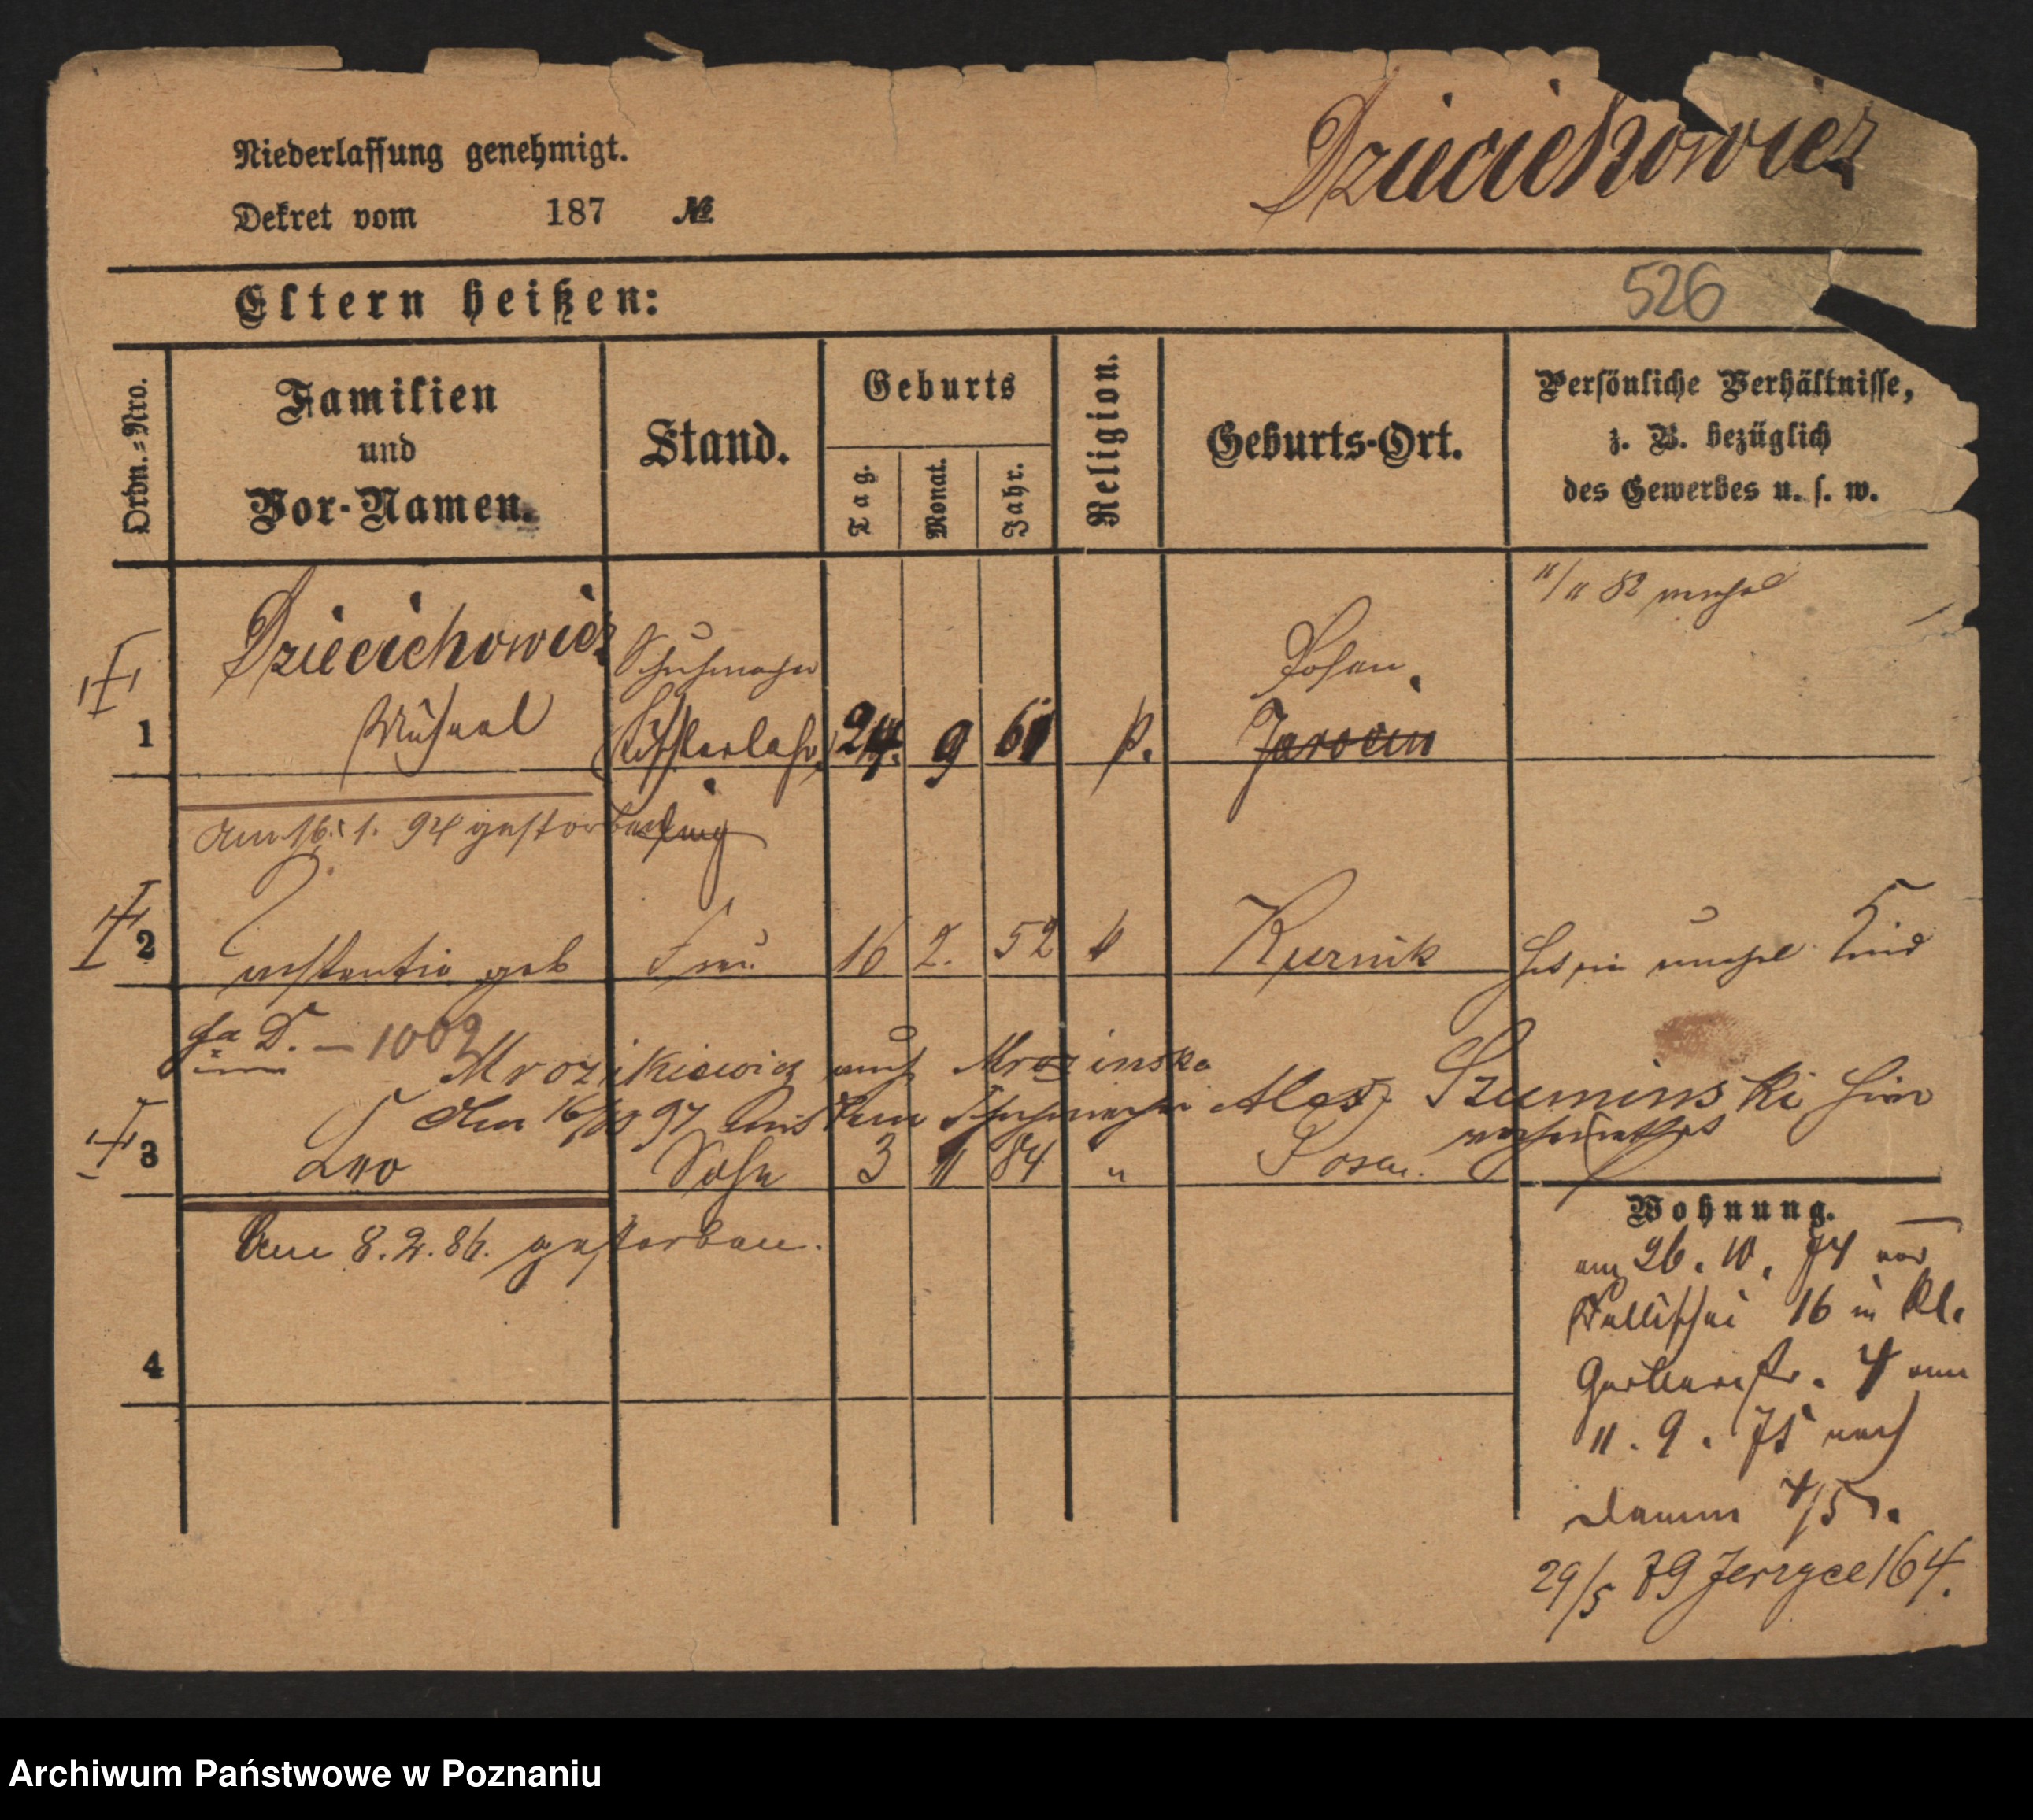 Niederlassung genehmigt.
Dziecichowicz
Dekret vom 187 №
Eltern heißen:
526
Ordn.=Nro.
Familien
und
Vor-Namen.
Stand.
Geburts
Tag.
Monat.
Jahr.
Religion.
Geburts-Ort.
Persönliche Verhältnisse,
z. B. bezüglich
des Gewerbes u. s. w.
11/11 82 verehel
Dziecichowicz Schuhmacher Posen
1 Michael Tischlerlehr 24. 9 61 k. Jarocin
ling
Am 16. 1. 94 gestorben
2 Constantia geb Frau 16 2. 52 k Kurnik hat ein unehel Kind
fa D. — 1002
Mrozikiewicz auch Mrozinska
Am 97 mit dem Schuhmacher Alex Szuminski hier
verheirathet
3 Leo Sohn 3 11 84 " Posen.
Am 8. 2. 86. gestorben.
Wohnung.
am 26. 10. 74 von
Wallischei 16 in Kl.
Gerberstr. 4 am
11. 9. 75 nach
Damm 4/5.
29/5 79 Jerzyce 164.
4
Archiwum Państwowe w Poznaniu